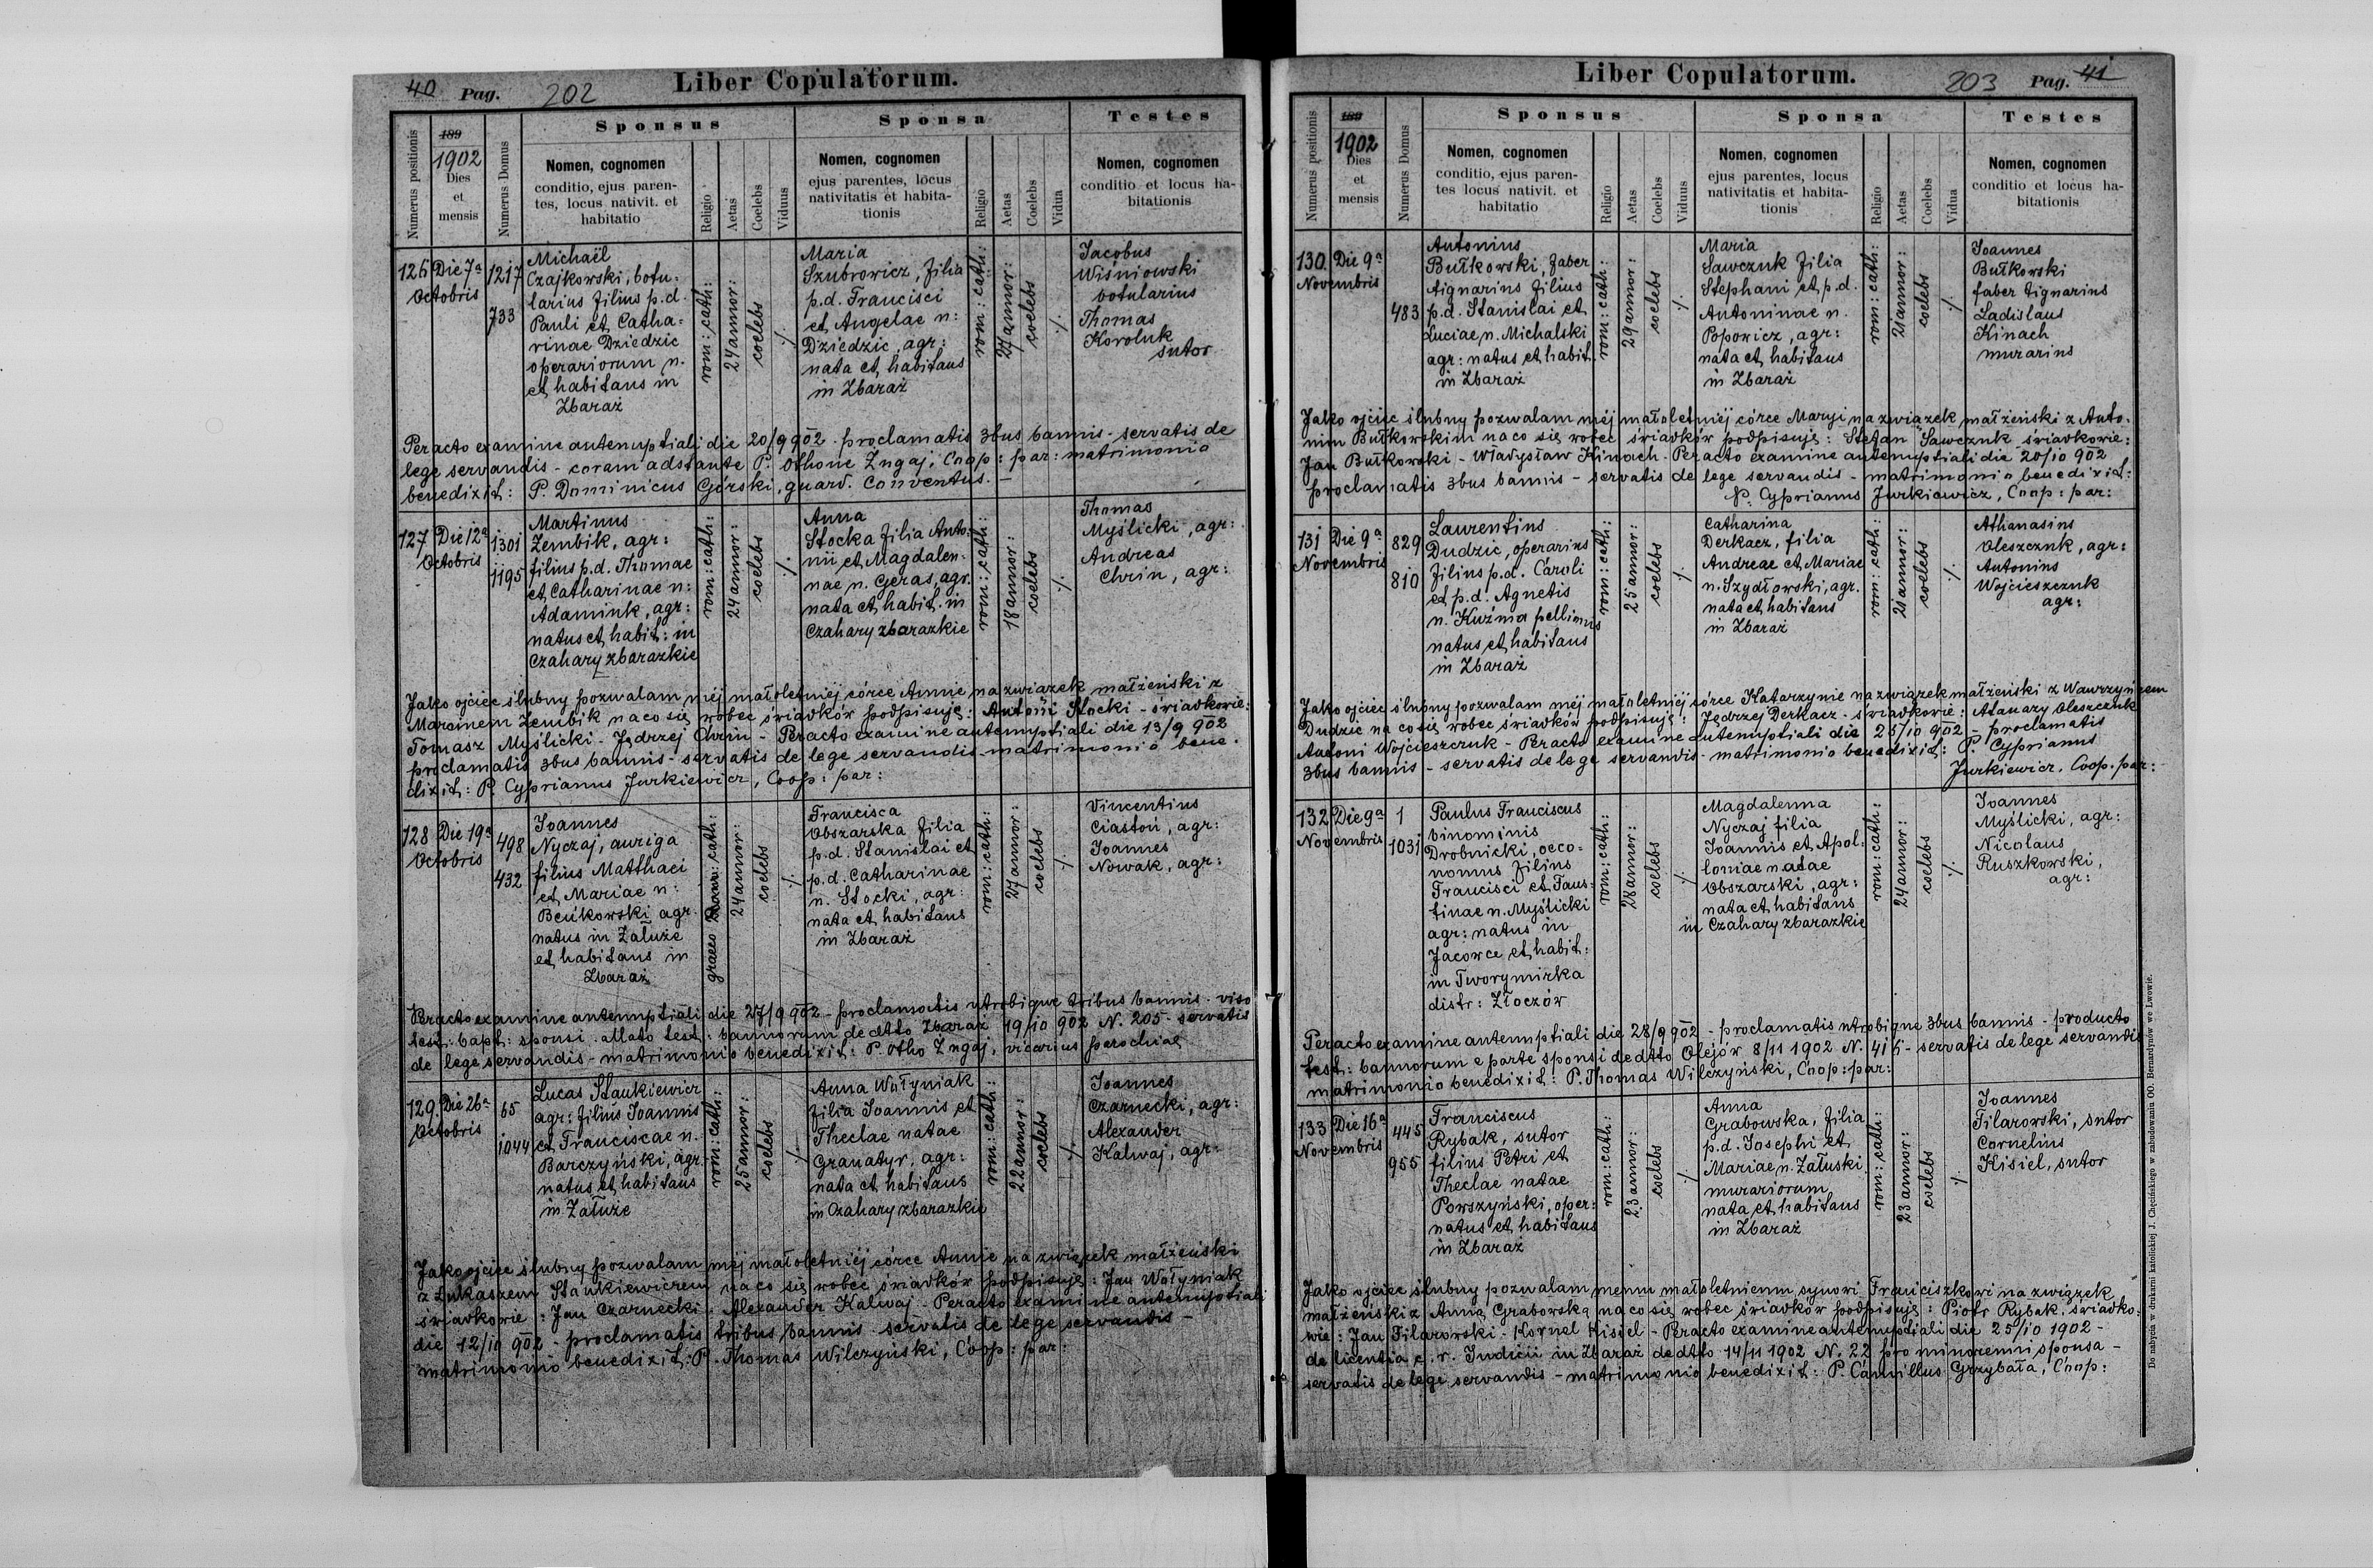 40 Pag. 202 Liber Copulatorum.
Numerus positionis
189
1902
Dies
et
mensis
Numerus Domus
Sponsus
Nomen, cognomen
conditio, ejus paren-
tes, locus nativit. et
habitatio
Religio
Aetas
Coelebs
Viduus
Sponsa
Nomen, cognomen
ejus parentes, locus
nativitatis et habita-
tionis
Religio
Aetas
Coelebs
Vidua
Testes
Nomen, cognomen
conditio et locus ha-
bitationis
126
Die 7ª
Octobris
1217
733
Michaël
Czajkowski, botu-
larius filius p.d.
Pauli et Catha-
rinae Dziedzic
operariorum n.
et habitans in
Zbaraż
rom: cath:
24 annor:
coelebs
./.
Maria
Szubrowicz, filia
p.d. Francisci
et Angelae n:
Dziedzic, agr:
nata et habitans
in Zbaraż
rom: cath:
27 annor:
coelebs
./.
Jacobus
Wiśniowski
botularius
Thomas
Koroluk
sutor
Peracto examine antenuptiali die 20/9 902 - proclamatis 3bus bannis - servatis de
lege servandis - coram adstante P. Othone Zngaj, Coop: par: matrimonio
benedixit: P. Dominicus Górski, guard. Conventus. -
127
Die 12ª
Octobris
1301
1195
Martinus
Zembik, agr:
filius p.d. Thomae
et Catharinae n:
Adamiuk, agr:
natus et habit: in
Czahary zbarazkie
rom: cath:
24 annor:
coelebs
./.
Anna
Stocka filia Anto-
nii et Magdalen-
nae n. Geras, agr.
nata et habit. in
Czahary zbarazkie
rom: cath:
18 annor:
coelebs
./.
Thomas
Myślicki, agr:
Andreas
Chrin, agr:
Jako ojciec ślubny pozwalam méj małoletniéj córce Annie na związek małżeński z
Marcinem Zembik na co się wobec świadków podpisuję: Antoni Stocki - świadkowie:
Tomasz Myślicki - Jędrzej Chrin - Peracto examine antenuptiali die 13/9 902
proclamatis 3bus bannis - servatis de lege servandis - matrimonio bene-
dixit: P. Cyprianus Jurkiewicz, Coop: par:
128
Die 19ª
Octobris
498
432
Joannes
Nyczaj, auriga
filius Matthaei
et Mariae n:
Beńkowski agr.
natus in Załuże
et habitans in
Zbaraż
graeco cath:
24 annor:
coelebs
./.
Francisca
Obszarska filia
p.d. Stanislai et
p.d. Catharinae
n. Stocki, agr:
nata et habitans
in Zbaraż
rom: cath:
27 annor:
coelebs
./.
Vincentius
Ciastoń, agr:
Joannes
Nowak, agr:
Peracto examine antenuptiali die 27/9 902 - proclamatis utrobique tribus bannis - viso
test: bapt: sponsi allato test: bannorum de dtto Zbaraż 19/10 902 N. 205 - servatis
de lege servandis - matrimonio benedixit: P. Otho Zngaj, vicarius parochiae
129
Die 26ª
Octobris
65
1044
Lucas Stankiewicz
agr: filius Joannis
et Franciscae n.
Barczyński, agr.
natus et habitans
in Załuże
rom: cath:
25 annor:
coelebs
./.
Anna Wołyniak
filia Joannis et
Theclae natae
Granatyr, agr:
nata et habitans
in Czahary zbarazkie
rom: cath:
22 annor:
coelebs
./.
Joannes
Czarnecki, agr:
Alexander
Kalwaj, agr:
Jako ojciec ślubny pozwalam méj małoletniéj córce Annie na związek małżeński
z Łukaszem Stankiewiczem na co się wobec świadków podpisuję: Jan Wołyniak
świadkowie: Jan Czarnecki - Alexander Kalwaj - Peracto examine antenuptiali
die 12/10 902 - proclamatis tribus bannis - servatis de lege servandis -
matrimonio benedixit: P. Thomas Wilczyński, Coop: par:
Liber Copulatorum. 203 Pag. 41
Numerus positionis
189
1902
Dies
et
mensis
Numerus Domus
Sponsus
Nomen, cognomen
conditio, ejus paren-
tes locus nativit. et
habitatio
Religio
Aetas
Coelebs
Viduus
Sponsa
Nomen, cognomen
ejus parentes, locus
nativitatis et habita-
tionis
Religio
Aetas
Coelebs
Vidua
Testes
Nomen, cognomen
conditio et locus ha-
bitationis
130.
Die 9ª
Novembris
483
Antonius
Bułkowski, faber
tignarius filius
p.d. Stanislai et
Luciae n. Michalski
agr: natus et habit.
in Zbaraż
rom: cath:
29 annor:
coelebs
./.
Maria
Sawczuk filia
Stephani et p.d.
Antoninae n.
Popowicz, agr:
nata et habitans
in Zbaraż
rom: cath:
21 annor:
coelebs
./.
Joannes
Bułkowski
faber tignarius
Ladislaus
Kinach
murarius
Jako ojciec ślubny pozwalam méj małoletniéj córce Maryi na związek małżeński z Anto-
nim Bułkowskim na co się wobec świadków podpisuję: Stefan Sawczuk świadkowie:
Jan Bułkowski - Władysław Kinach. Peracto examine antenuptiali die 20/10 902
proclamatis 3bus bannis - servatis de lege servandis - matrimonio benedixit:
P. Cyprianus Jurkiewicz, Coop: par:
131
Die 9ª
Novembris
829
810
Laurentius
Dudzic, operarius
filius p.d. Caroli
et p.d. Agnetis
n. Kuźma pellimus
natus et habitans
in Zbaraż
rom: cath:
25 annor:
coelebs
./.
Catharina
Derkacz, filia
Andreae et Mariae
n. Szydłowski, agr.
nata et habitans
in Zbaraż
rom: cath:
21 annor:
coelebs
./.
Athanasius
Oleszczuk, agr:
Antonius
Wojcieszczuk
agr:
Jako ojciec ślubny pozwalam méj małoletniéj córce Katarzynie na związek małżeński z Wawrzyńcem
Dudzic na co się wobec świadków podpisuję: Jędrzej Derkacz - świadkowie: Atanazy Oleszczuk
Antoni Wojcieszczuk - Peracto examine antenuptiali die 25/10 902 - proclamatis
3bus bannis - servatis de lege servandis - matrimonio benedixit: P. Cyprianus
Jurkiewicz, Coop. par:
132
Die 9ª
Novembris
1
1031
Paulus Franciscus
binominis
Drobnicki, oeco-
nomus filius
Francisci et Faus-
tinae n. Myślicki
agr: natus in
Jacowce et habit:
in Tworymirka
distr: Złoczów
rom: cath:
28 annor:
coelebs
./.
Magdalenna
Nyczaj filia
Joannis et Apol-
loniae natae
Obszarski, agr:
nata et habitans
in Czahary zbarazkie
rom: cath:
24 annor:
coelebs
./.
Joannes
Myślicki, agr:
Nicolaus
Ruszkowski,
agr:
Peracto examine antenuptiali die 28/9 902 - proclamatis utrobique 3bus bannis - producto
test: bannorum e parte sponsi de dtto Olejów 8/11 1902 N. 416 - servatis de lege servandis
matrimonio benedixit: P. Thomas Wilczyński, Coop: par:
133
Die 16ª
Novembris
445
955
Franciscus
Rybak, sutor
filius Petri et
Theclae natae
Powszyński, oper:
natus et habitans
in Zbaraż
rom: cath:
23 annor:
coelebs
./.
Anna
Grabowska, filia
p.d. Josephi et
Mariae n. Załuski
murariorum
nata et habitans
in Zbaraż
rom: cath:
23 annor:
coelebs
./.
Joannes
Filarowski, sutor
Cornelius
Kisiel, sutor
Jako ojciec ślubny pozwalam memu małoletniemu synowi Franciszkowi na związek
małżeński z Anną Grabowską na co się wobec świadków podpisuję: Piotr Rybak. świadko-
wie: Jan Filarowski - Kornel Kisiel - Peracto examine antenuptiali die 25/10 1902 -
de licentia c. r. Judicii in Zbaraż de dtto 14/11 1902 N. 22 pro minorenni sponsa -
servatis de lege servandis - matrimonio benedixit: P. Camillus Grzybała, Coop:
Do nabycia w drukarni katolickiej J. Chęcińskiego w zabudowaniu OO. Bernardynów we Lwowie.